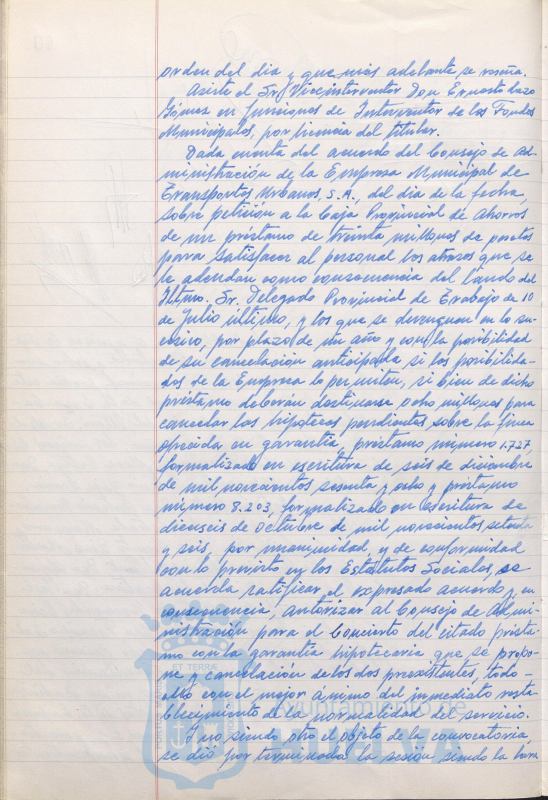 orden del dia y que más adelante se reseña.
Asiste el Sr. Viceinterventor Don Ernesto Lazo
Gómez en funciones de Interventor de los Fondos
Municipales, por licencia del titular.
Dada cuenta del acuerdo del Consejo de Ad-
ministración de la Empresa Municipal de
Transportes Urbanos, S.A., del día de la fecha,
sobre petición a la Caja Provincial de Ahorros
de un préstamo de treinta millones de pesetas
para satisfacer al personal los atrasos que se
le adeudan como consecuencia del Laudo del
Iltmo. Sr. Delegado Provincial de Trabajo de 10
de Julio último, y los que se devenguen en lo su-
cesivo, por plazo de un año y con la posibilidad
de su cancelación anticipada si las posibilida-
des de la Empresa lo permiten, si bien de dicho
préstamo deberán destinarse ocho millones para
cancelar las hipotecas pendientes sobre la finca
ofrecida en garantía, préstamo número 1.727,
formalizado en escritura de seis de diciembre
de mil novecientos sesenta y ocho y préstamo
número 8.203, formalizado en escritura de
dieciseis de octubre de mil novecientos setenta
y seis, por unanimidad, y de conformidad
con lo previsto en los Estatutos Sociales, se
acuerda ratificar el expresado acuerdo y, en
consecuencia, autorizar al Consejo de Admi-
nistración para el concierto del citado présta-
mo con la garantía hipotecaria que se propo-
ne y cancelación de los dos preexistentes, todo
ello con el mejor ánimo del inmediato resta-
blecimiento de la normalidad del servicio.
Y no siendo otro el objeto de la convocatoria
se dió por terminada la sesión siendo la hora
ET TERRÆ
Ayuntamiento de
HUELVA